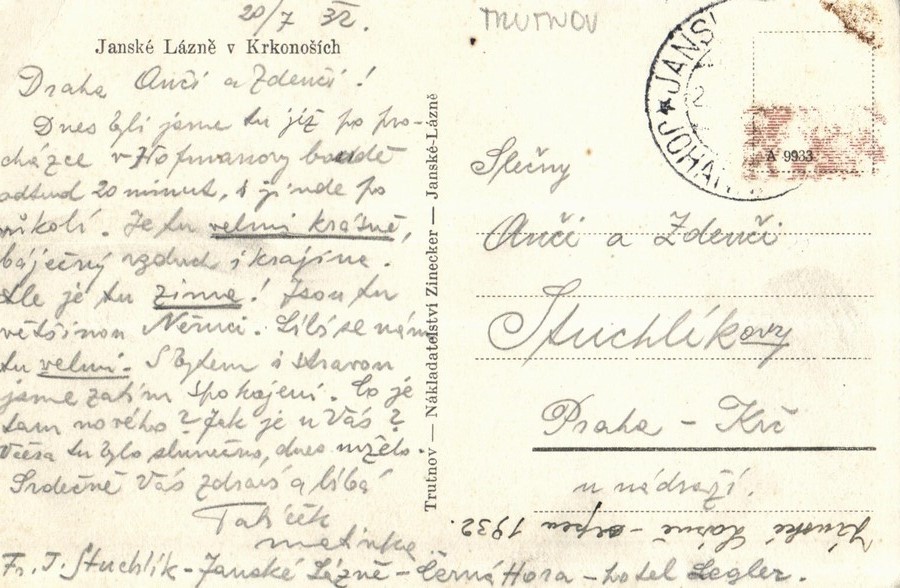 20/7 32.
TRUTNOV
Janské Lázně v Krkonoších
Drahá Anči a Zdenči!
Dnes byli jsme tu již po pro-
cházce v Hofmanovy boudě
odtud 20 minut, i jinde po
okolí. Je tu velmi krásně,
báječný vzduch i krajina.
Ale je tu zima! Jsou tu
většinou Němci. Líbí se nám
tu velmi. S bytem i stravou
jsme zatím spokojeni. Co je
tam nového? Jak je u Vás?
Včera tu bylo slunečno, dnes
Srdečně Vás zdraví a líbá
Tatíček
matinka
Fr. J. Stuchlík - Janské Lázně - Černá Hora - hotel Legler.
Trutnov — Nakladatelství Zinecker — Janské-Lázně
JANS
JOHAN
A 9933
Slečny
Anči a Zdenči
Stuchlíkovy
Praha - Krč
u nádraží.
Janské Lázně - srpen 1932.